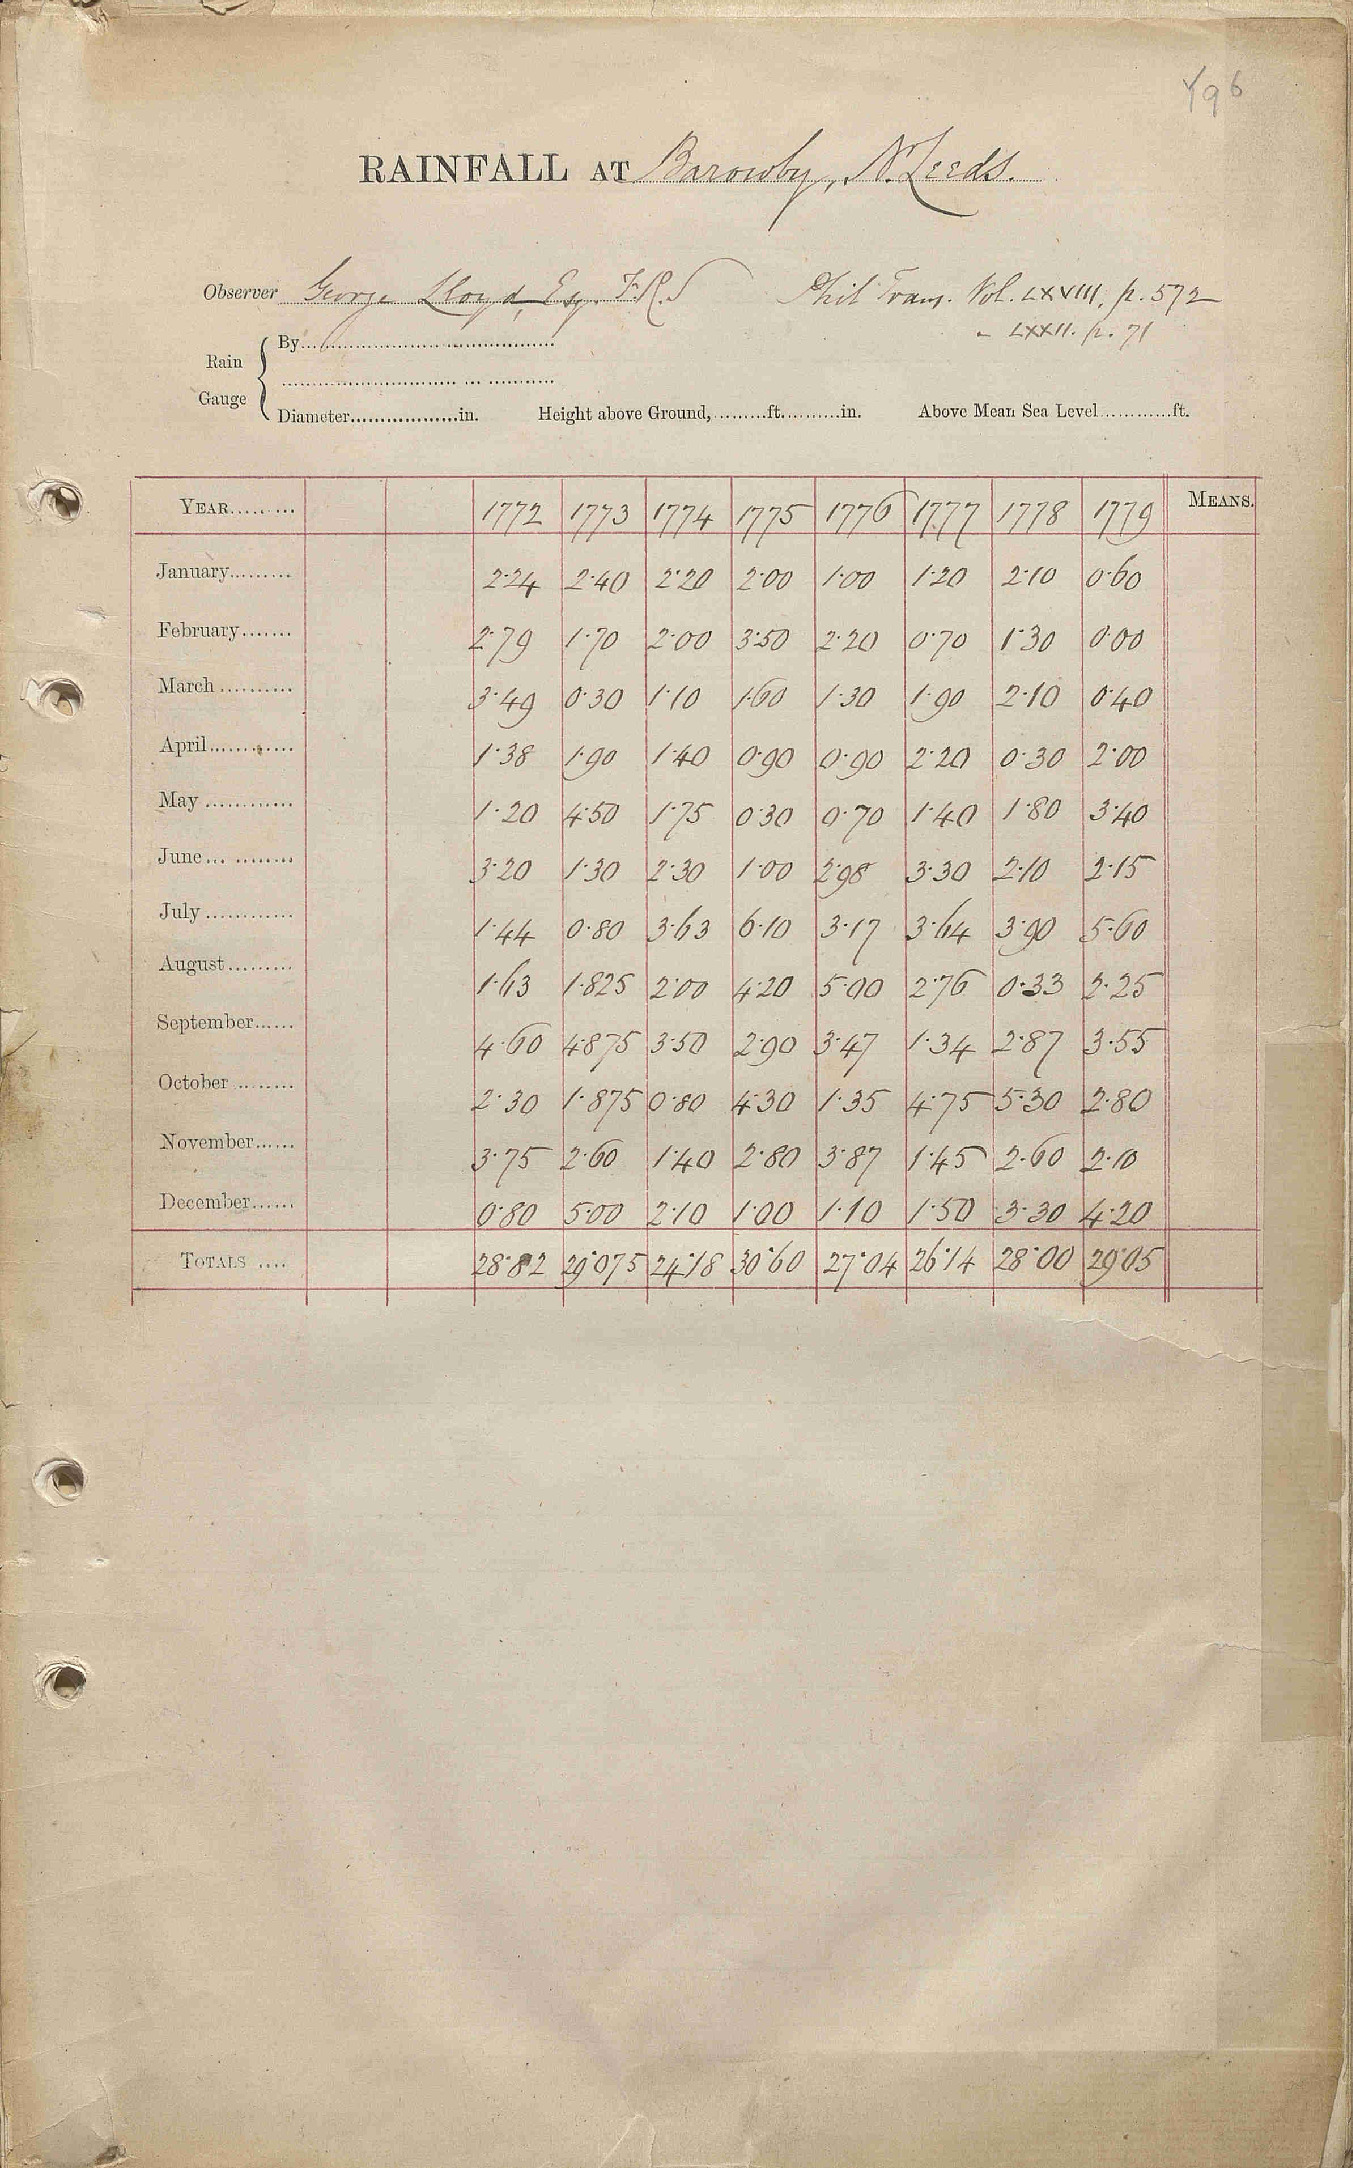 Y96
RAINFALL AT Barowby, N. Leeds.
Observer George Lloyd, Esq. F.R.S Phil Trans. Vol. LXVIII, p. 572
" LXXII. p. 71
Rain Gauge { By..........
Diameter..........in. Height above Ground,.........ft..........in. Above Mean Sea Level............ft.
YEAR......... 1772 1773 1774 1775 1776 1777 1778 1779 MEANS.
January......... 2·24 2·40 2·20 2·00 1·00 1·20 2·10 0·60
February....... 2·79 1·70 2·00 3·50 2·20 0·70 1·30 0·00
March .......... 3·49 0·30 1·10 1·60 1·30 1·90 2·10 0·40
April............ 1·38 1·90 1·40 0·90 0·90 2·20 0·30 2·00
May ............ 1·20 4·50 1·75 0·30 0·70 1·40 1·80 3·40
June... ........ 3·20 1·30 2·30 1·00 2·98 3·30 2·10 2·15
July ............ 1·44 0·80 3·63 6·10 3·17 3·64 3·90 5·60
August......... 1·63 1·825 2·00 4·20 5·00 2·76 0·33 2·25
September...... 4·60 4·875 3·50 2·90 3·47 1·34 2·87 3·55
October ......... 2·30 1·875 0·80 4·30 1·35 4·75 5·30 2·80
November...... 3·75 2·60 1·40 2·80 3·87 1·45 2·60 2·10
December...... 0·80 5·00 2·10 1·00 1·10 1·50 3·30 4·20
TOTALS .... 28·82 29·075 24·18 30·60 27·04 26·14 28·00 29·05